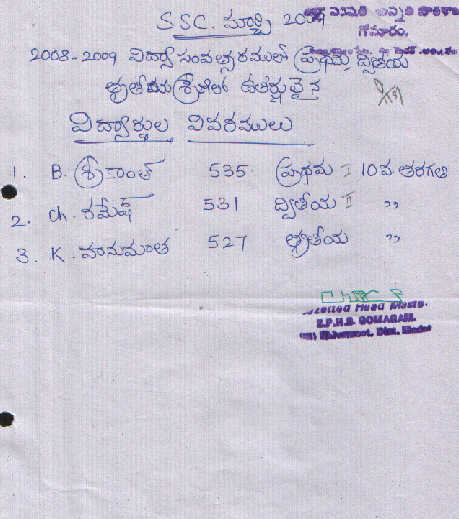 SSC. మార్చి 2009
గోమారం.
2008-2009 విద్యా సంవత్సరములో ప్రథమ, ద్వితీయ
తృతీయ శ్రేణిలో ఉత్తీర్ణులైన
విద్యార్థుల వివరములు
1. B. శ్రీకాంత్ 535 ప్రథమ I 10వ తరగతి
2. Ch. రమేష్ 531 ద్వితీయ II ,,
3. K. హనుమంత 527 తృతీయ ,,
Gazetted Head Master.
Z.P.H.S. GOMARAM.
Dist. Medak